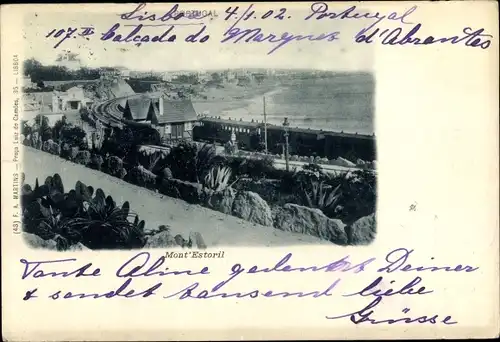 PORTUGAL
Lisbo 4/1.02 Portugal
107III Calçada do Marquez d'Abrantes
(43) F. A. MARTINS — Praça Luiz de Camões, 35 — LISBOA
Mont'Estoril
Tante Aline gedenkt Deiner
& sendet tausend liebe
Grüsse